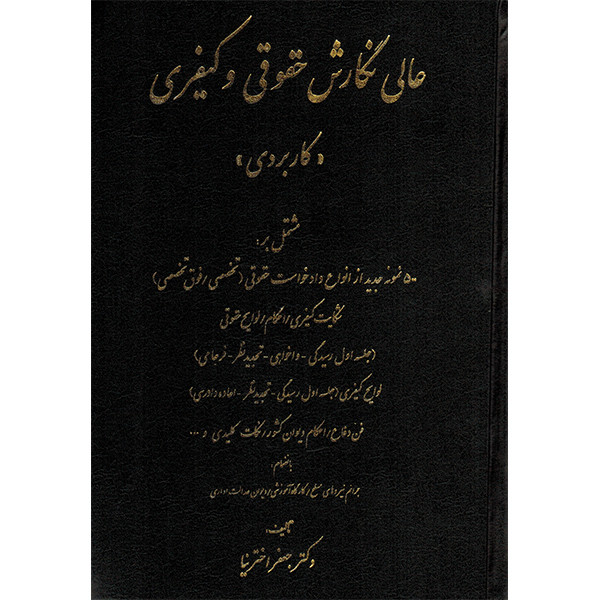 عالی نگارش حقوقی و کیفری
«کاربردی»
مشتمل بر:
۵۰۰ نمونه جدید از انواع دادخواست حقوقی (تخصصی/فوق تخصصی)
شکایت کیفری/احکام/لوایح حقوقی
(جلسه اول رسیدگی - واخواهی - تجدیدنظر - فرجامی)
لوایح کیفری (جلسه اول رسیدگی - تجدیدنظر - اعاده دادرسی)
فن دفاع/احکام دیوان کشور/نکات کلیدی و ...
بانضمام:
جرائم نیروهای مسلح/کارگاه آموزشی/دیوان عدالت اداری
تالیف:
دکتر جعفر اخترنیا